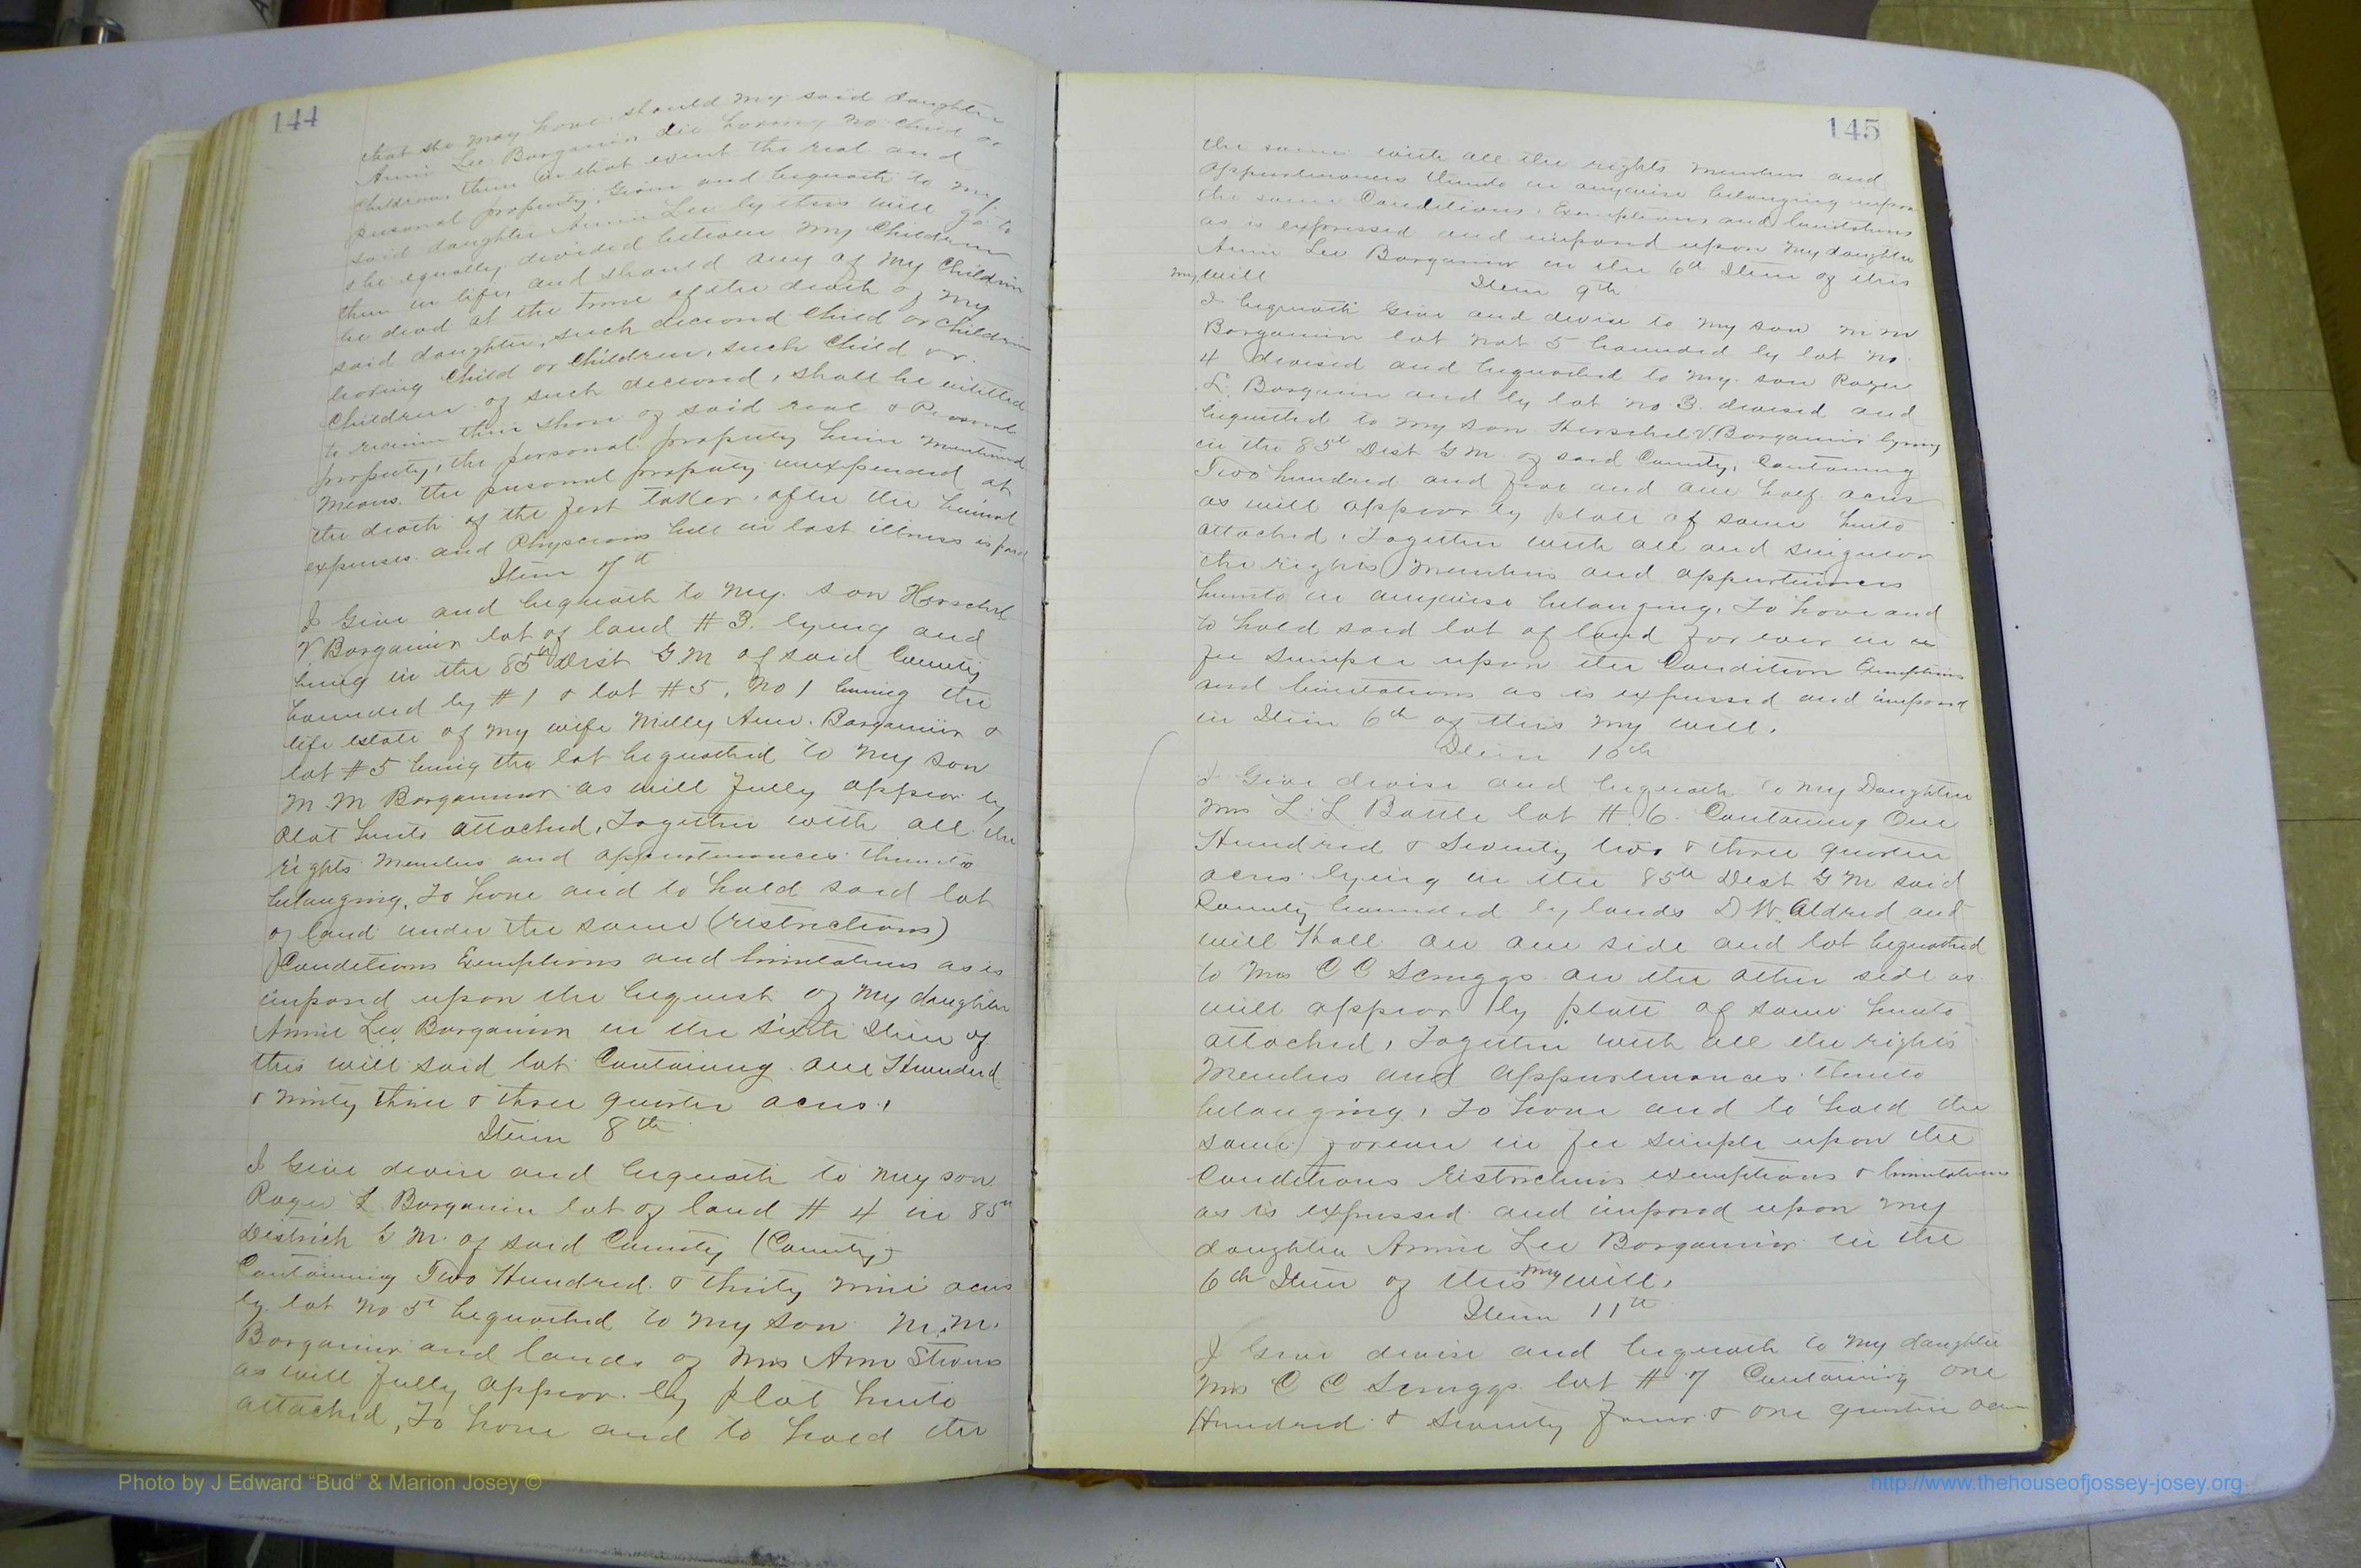 144
that she may have. should my said daughter
Annie Lee Bargainier die having no child or
children, then in that event the real and
personal property, Given and bequeath to my
said daughter Annie Lee by this will go to
be equally divided between my Children
then in life, and should any of my Children
be dead at the time of the death of my
said daughter, such deceased Child or Children
leaving Child or Children, such Child or
Children of such deceased, shall be entitled
to receive their share of said real & Personal
property, the personal property herein mentioned
means the personal property unexpended at
the death of the first taker, after the burial
expenses and Physicians bill in last illness is paid
Item 7th
I Give and bequeath to my son Herschel
V Bargainier lot of land # 3. lying and
being in the 85th Dist G. M of said County
bounded by # 1 & lot # 5, No 1 being the
life Estate of my wife Milly Ann. Bargainier &
lot # 5 being the lot bequeathed to my son
M. M Bargainier as will fully appear by
Plat hereto attached, Together with all the
rights members and appurtenances thereto
belonging. To have and to hold said lot
of land under the same (restrictions)
Conditions Exemptions and limitations as is
imposed upon the bequest of my daughter
Annie Lee Bargainier in the sixth Item of
this will said lot Containing One Hundred
& ninty three & three quarter acres,
Item 8th
I Give devise and bequeath to my son
Roger L Bargainier lot of land # 4 in 85th
District G. M. of said County (County)
Containing Two Hundred & thirty nine acres
by lot No 5 bequeathed to my son M. M.
Bargainier and lands of Mrs Ann
as will fully appear by plat hereto
attached, To have and to hold the
145
the same with all the rights members and
appurtenances thereto in anywise belonging upon
the same Conditions, Exemptions and limitations
as is expressed and imposed upon my daughter
Annie Lee Bargainier in the 6th Item of this
my will
Item 9th
I bequeath Give and devise to my son M M
Bargainier lot No 5 bounded by lot No
4 devised and bequeathed to my son Roger
L. Bargainier and by lot No 3. devised and
bequeathed to my son Herschel V. Bargainier lying
in the 85th Dist G M of said County, Containing
Two hundred and five and one half acres
as will appear by plat of same hereto
attached, Together with all and singular
the rights members and appurtenances
hereunto in anywise belonging, To have and
to hold said lot of land forever in
fee simple upon the Condition Exemptions
and limitations as is expressed and imposed
in Item 6th of this my will.
Item 10th
I Give devise and bequeath to my Daughter
Mrs L. L. Battle lot # 6. Containing One
Hundred & Seventy two & three quarter
acres lying in the 85th Dist G M said
County bounded by lands D W. Aldred and
Will Hall on one side and lot bequeathed
to Mrs C C Scruggs on the other side as
will appear by plat of same hereto
attached, Together with all the rights
Members and appurtenances thereto
belonging, To have and to hold the
same forever in fee simple upon the
Conditions restrictions exemptions & limitations
as is expressed and imposed upon my
daughter Annie Lee Bargainier in the
6th Item of this my will.
Item 11th
I Give devise and bequeath to my daughter
Mrs C C Scruggs lot # 7 Containing one
Hundred & Seventy four & one quarter acres
Photo by J Edward “Bud” & Marion Josey ©
http://www.thehouseofjossey-josey.org